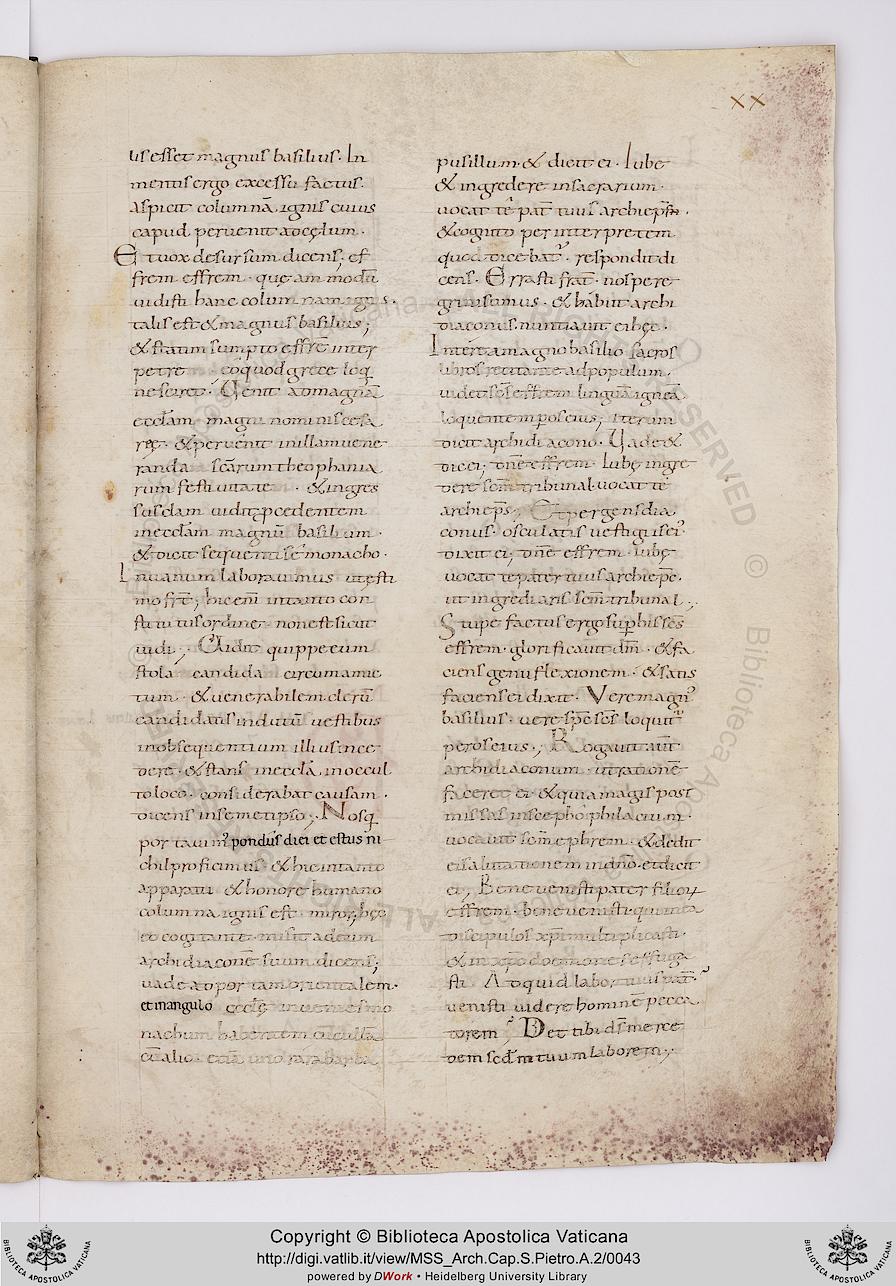 xx
us esset magnus basilius. In
mentis ergo excessu factus.
aspicit columnā ignis cuius
capud pervenit ad cęlum.
Et vox desursum dicens; ef
frem effrem. quęammodū
vidisti hanc columnam ignis.
talis est & magnus basilius;
& statim sumpto effrē inter
petre eo quod grece loq
nesciret. Venit ad magnā
ecclam magni nominis cesa
reę. & pervenit in illam vene
randa scārum theophania
rum festivitate. & ingres
sus dam vidit pcedentem
in ecclam magnū basilium.
& dicit sequenti sē monacho.
In vanum laboravimus ut ęsti
mo frē; hic enī in tanto con
stitutus ordine. non est sicut
vidi; Vidit quippe eum
stola candida circumamic
tum. & venerabilem clerū
candidatis indutū vestibus
in obsequentium illius ince
dere. & stans in eccla in occul
to loco. considerabat causam.
dicens in semetipso; Nos q
portavim' pondus diei et estus ni
chil proficimus & hic in tanto
apparatu & honore humano
columna ignis est. miror; hęc
eo cogitante. misit ad eum
archidiaconē suum dicens;
vade ad portam orientalem.
et in angulo eccłę invenies mo
nachum habentem cucullā
cū alio etiā uno rara barba
pusillum. & dicit ei. Iube
& ingredere in sacrarium.
vocat te pat tuus archieps.
& cognito per interpretem
quod dicebat'. respondit di
cens. Errasti frat. nos pere
grini sumus. & habiit archi
diaconus. nuntiavit ei hęc.
Interea magno basilio sacros
libros recitante ad populum.
videt scs effrem linguā igneā
loquentem p os eius; Iterum
dicit archidiacono. Vade &
dic ei; dne effrem. Iubę ingre
dere scm tribunal. vocat te
archieps; Et pergens dia
conus. osculatis vestigiis ei'
dixit ei; dne effrem. iubę
vocat te pater tuus archiepe.
ut ingrediaris scm tribunal;
Stupefactus ergo sup his scs
effrem. glorificavit dm. & fa
ciens genu flexionem. & satis
faciens ei dixit. Vere magn'
basilius. vere sps scs loquit'
per os eius; Rogavit aut
archidiaconum. ut rationē
faceret ei & quia magis post
missas in scephophilacium.
vocavit scm ephrem. & dedit
ei salutationem in dno. et dicit
ei; Bene venisti pater filiorum
effrem. bene venisti qui in ta
discipulos xpi multiplicasti.
& in xpo demones effuga
sti. Ad quid labor tuus pat?
venisti videre hominē pecca
torem? Det tibi ds merce
dem scdm tuum laborem;
Copyright © Biblioteca Apostolica Vaticana
http://digi.vatlib.it/view/MSS_Arch.Cap.S.Pietro.A.2/0043
powered by DWork • Heidelberg University Library